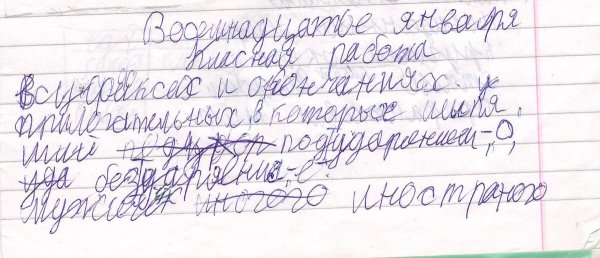 Восимнадцатое января
Класная работа
В суфексах и окончаниях. у
прилогательных в которых шыпя.
щий подударением-,О,
уда без ударения-,е.
Мужской много иностраного